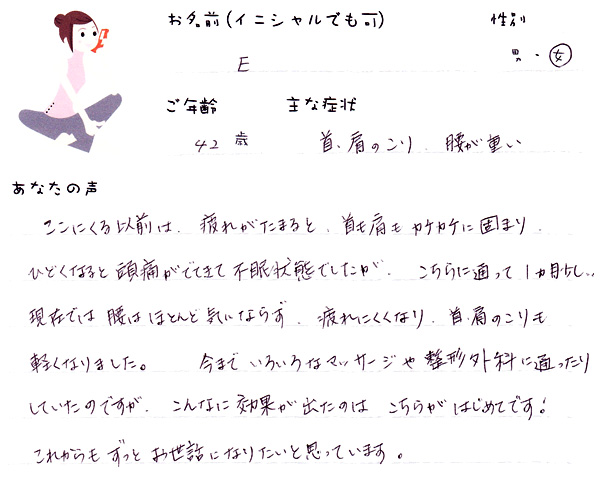 お名前(イニシャルでも可) 性別
E 男・女
ご年齢 主な症状
42 歳 首、肩のこり、腰が重い
あなたの声
ここにくる以前は、疲れがたまると、首も肩もカケカケに固まり、
ひどくなると頭痛がでてきて不眠状態でしたが、こちらに通って1ヵ月
現在では腰はほとんど気にならず、疲れにくくなり、首、肩のこりも
軽くなりました。 今までいろいろなマッサージや整形外科に通ったり
していたのですが、こんなに効果が出たのはこちらがはじめてです!
これからもずっとお世話になりたいと思っています。